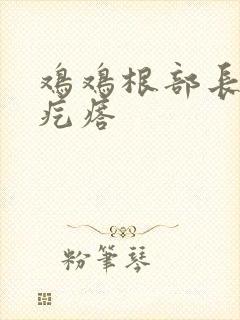 鸡鸡根部長
疙瘩
粉筆琴